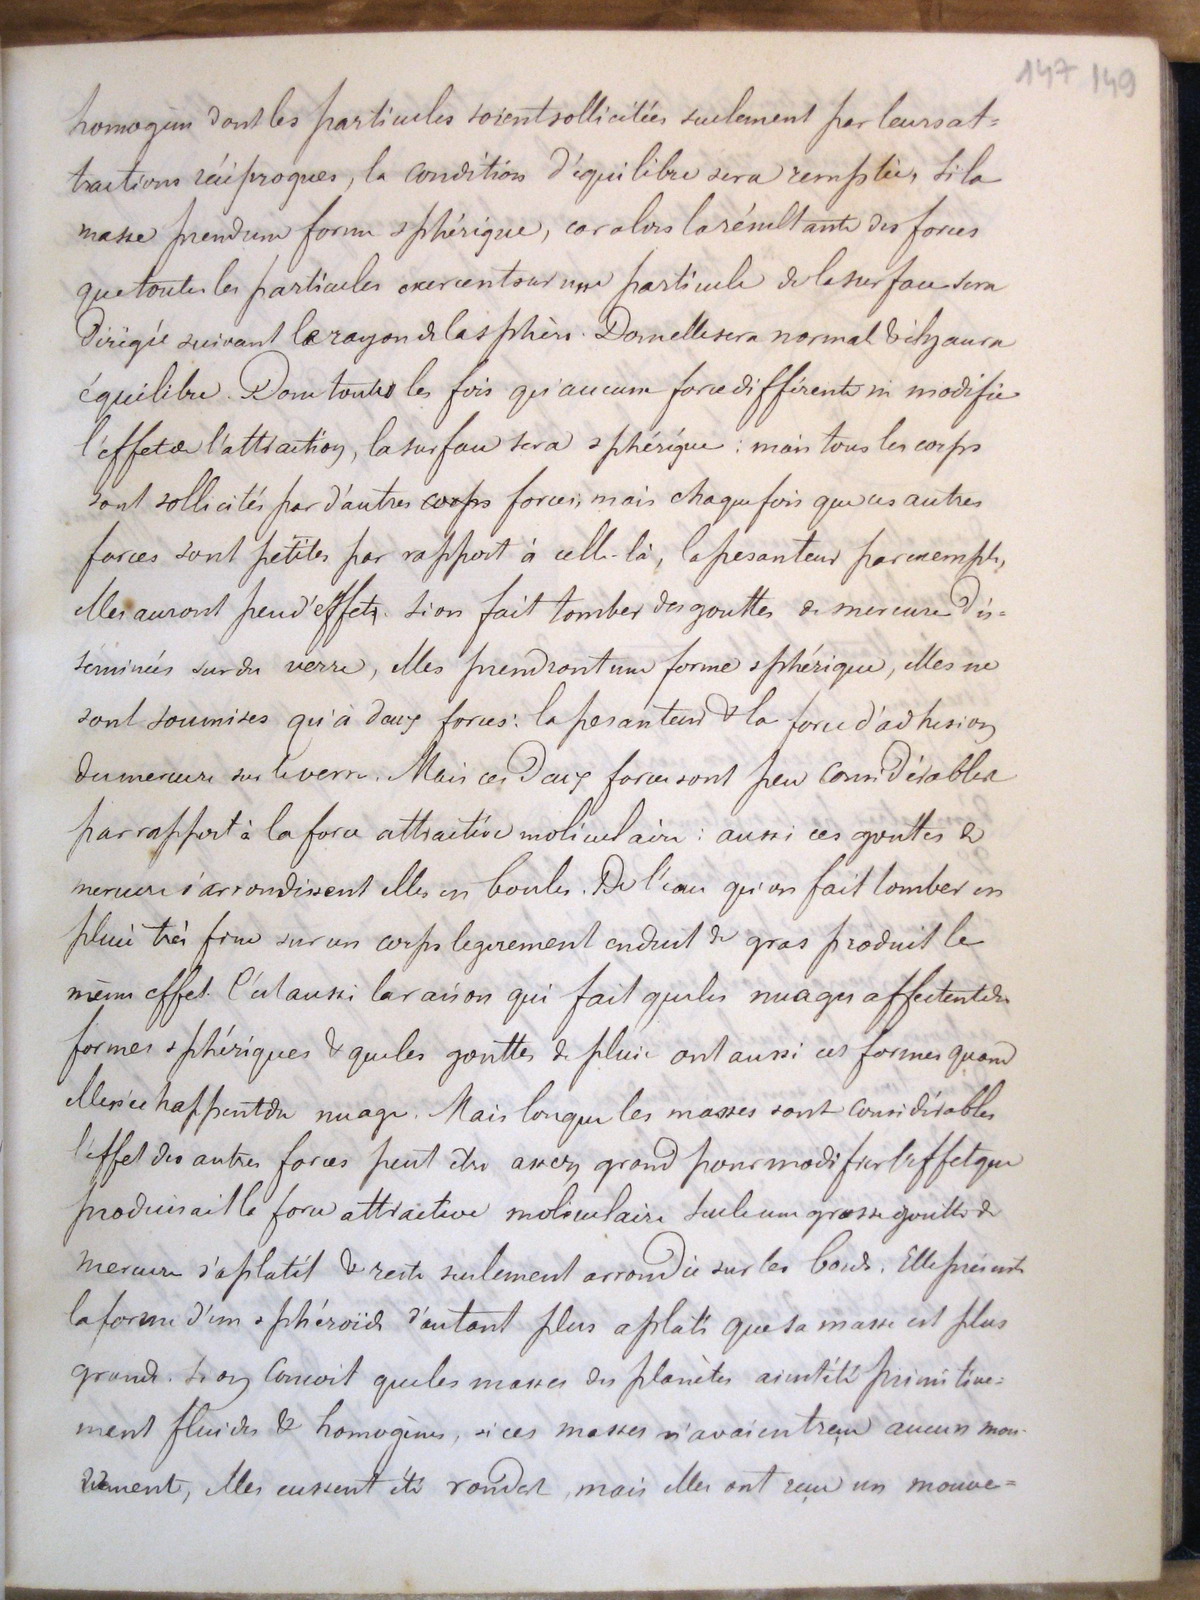 147 149
homogène dont les particules soient sollicitées seulement par leurs at=
tractions réciproques, la condition d'équilibre sera remplie, si la
masse prend une forme sphérique, car alors la résultante des forces
que toutes les particules exercent sur une particule de la surface sera
dirigée suivant le rayon de la sphère. Donc elle sera normal & il y aura
équilibre. Donc toutes les fois qu'aucune force différente ne modifie
l'effet de l'attraction, la surface sera sphérique : mais tous les corps
sont sollicités par d'autres corps forces, mais chaque fois que ces autres
forces sont petites par rapport à celle-là, la pesanteur par exemple,
elles auront peu d'effets. Si on fait tomber des gouttes de mercure dis=
séminées sur du verre, elles prendront une forme sphérique, elles ne
sont soumises qu'à deux forces : la pesanteur & la force d'adhesion
du mercure sur le verre. Mais ces deux forces sont peu considérables
par rapport à la force attractive moléculaire : aussi ces gouttes de
mercure s'arrondissent elles en boules. De l'eau qu'on fait tomber en
pluie très fine sur un corps legerement enduit de gras produit le
même effet. C'est aussi la raison qui fait que les nuages affectent des
formes sphériques & que les gouttes de pluie ont aussi ces formes quand
elles s'echappent du nuage. Mais lorsque les masses sont considérables
l'effet des autres forces peut être assez grand pour modifier l'effet que
produisait la force attractive moléculaire seule une grosse goutte de
mercure s'aplatit & reste seulement arrondie sur les bords. Elle présente
la forme d'un sphéroïde d'autant plus aplati que sa masse est plus
grande. Si on concoit que les masses des planètes aient été primitive=
ment fluides & homogènes, si ces masses n'avaient reçu aucun mou-
vement, elles eussent été rondes, mais elles ont reçu un mouve=